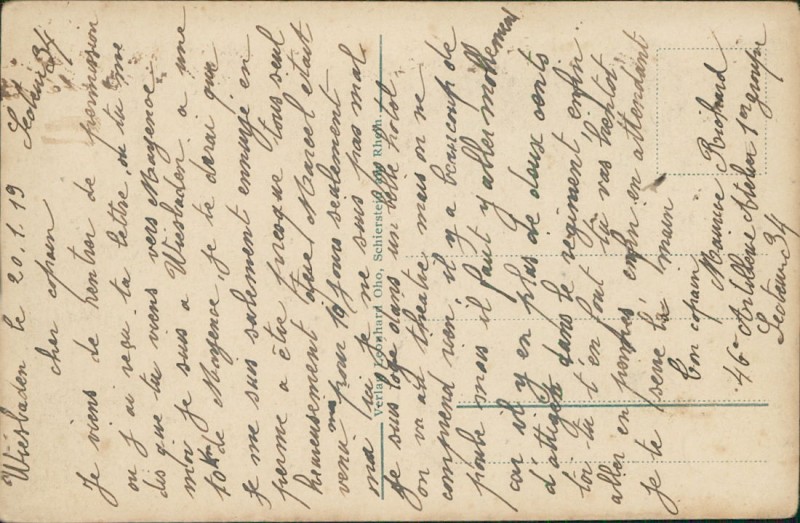 Wiesbaden le 20.1.19 Secteur 34
cher copain
Je viens de rentrer de permission
ou j'ai reçu ta lettre, ou tu me
dis que tu viens vers Mayence
moi je suis a Wiesbaden a une
10km de Mayence, je te dirai que
je me suis salement ennuyé en
perme a être presque tous seul
heureusement que Marcel etait
venu pour 10 jours seulement
ma foi je me suis pas mal
je suis logé dans un belle hotel
on va au theatre mais on ne
comprend rien, il y a beaucoup de
poules mais il faut y aller mollement
car il y en plus de deux cents
d'attigés dans le regiment enfin
toi tu t'en fout tu vas bientot
aller en enfin en attendant
je te serre la main
ton copain
Maurice Richard
46e Artillerie Atelier 1er groupe
Secteur 34
Verlag Leonhard Oho, Schierstein am Rhein.